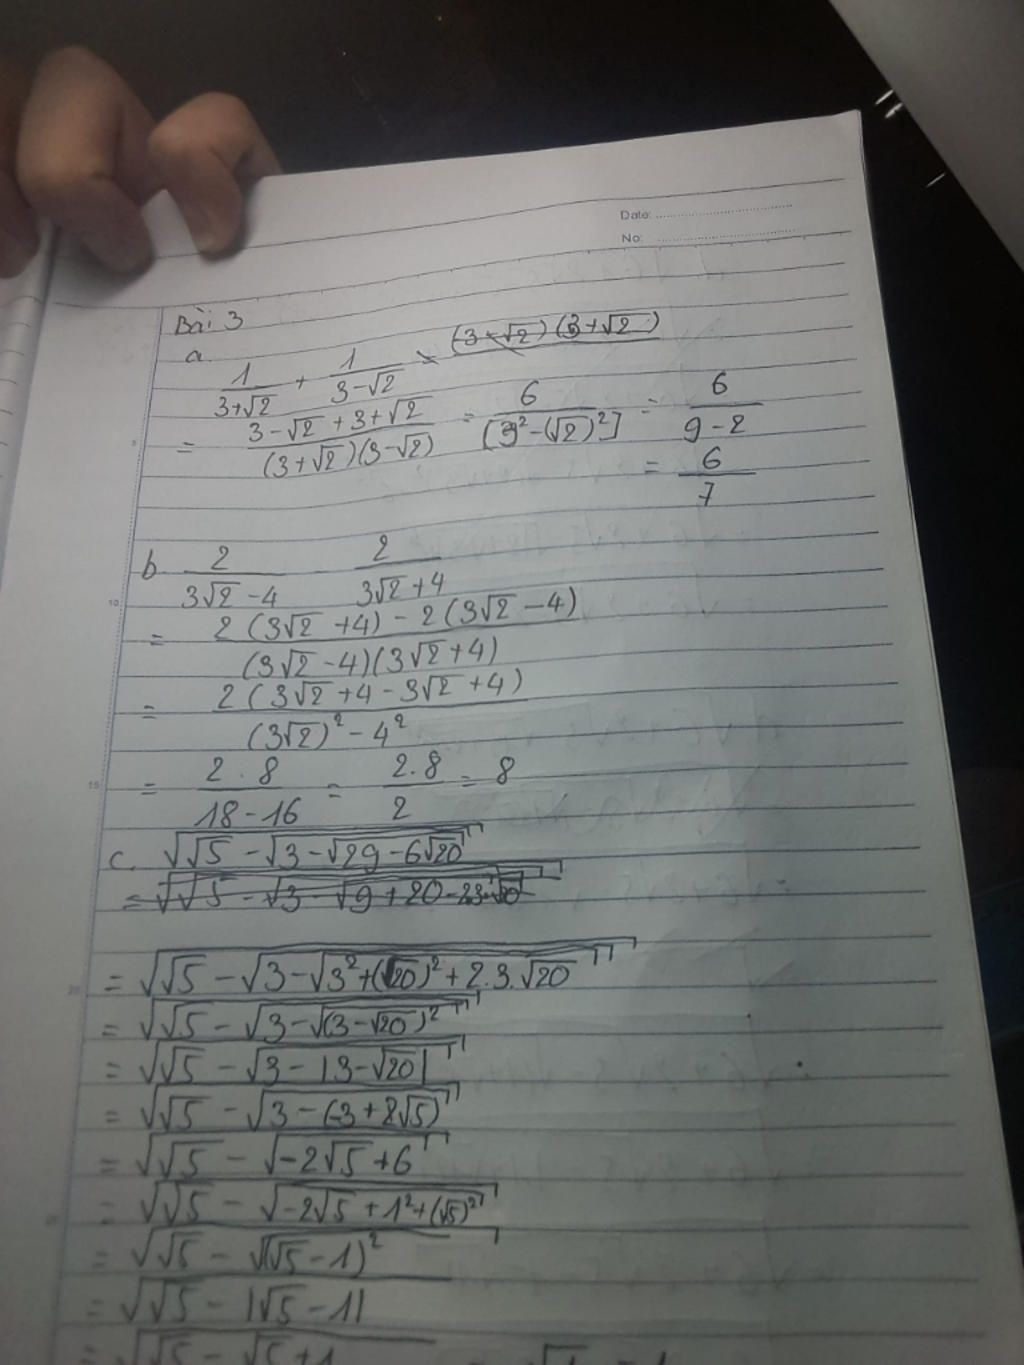 Date:
No:
Bài 3
a.
1/(3+√2) + 1/(3-√2)
= (3-√2+3+√2)/((3+√2)(3-√2)) = 6/[3²-(√2)²] = 6/(9-2)
= 6/7
b 2/(3√2-4) - 2/(3√2+4)
= (2(3√2+4) - 2(3√2-4))/((3√2-4)(3√2+4))
= (2(3√2+4-3√2+4))/((3√2)²-4²)
= (2.8)/(18-16) = (2.8)/2 = 8
c. √(√5-√(3-√(29-6√20)))
= √(√5-√(3-√(9+20-2.3.√20)))
= √(√5-√(3-√(3²+(√20)²+2.3.√20)))
= √(√5-√(3-√((3-√20)²)))
= √(√5-√(3-|3-√20|))
= √(√5-√(3-(-3+2√5)))
= √(√5-√(-2√5+6))
= √(√5-√(-2√5+1²+(√5)²))
= √(√5-√((√5-1)²))
= √(√5-|√5-1|)
= √(√5-√5+1)
5
10
15
20